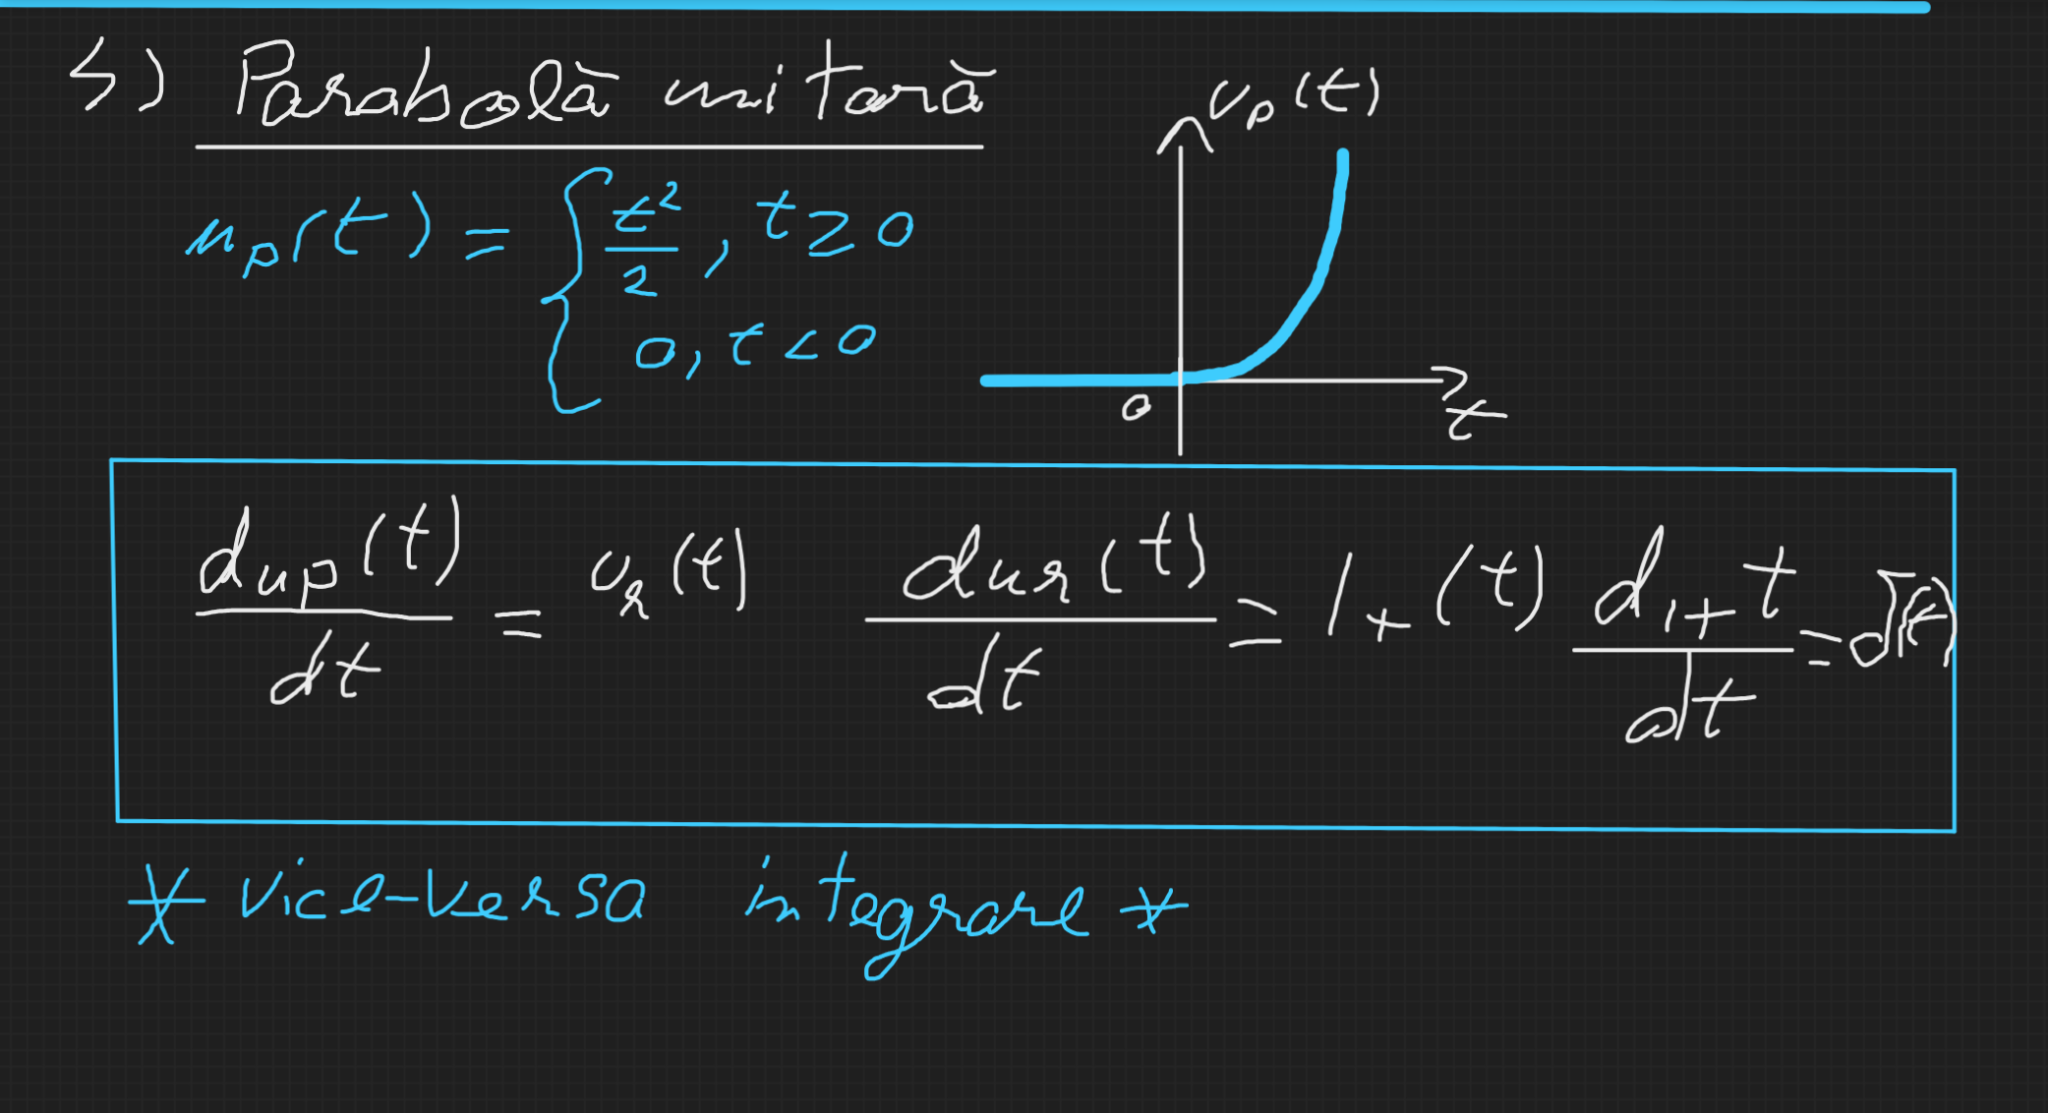 5) Parabolă unitară
u_p(t) = { t²/2, t ≥ 0
0, t < 0
u_p(t)
0
t
du_p(t)/dt = u_r(t) du_r(t)/dt = 1_+(t) d1_+t/dt = δ(t)
* vice-versa integrare *